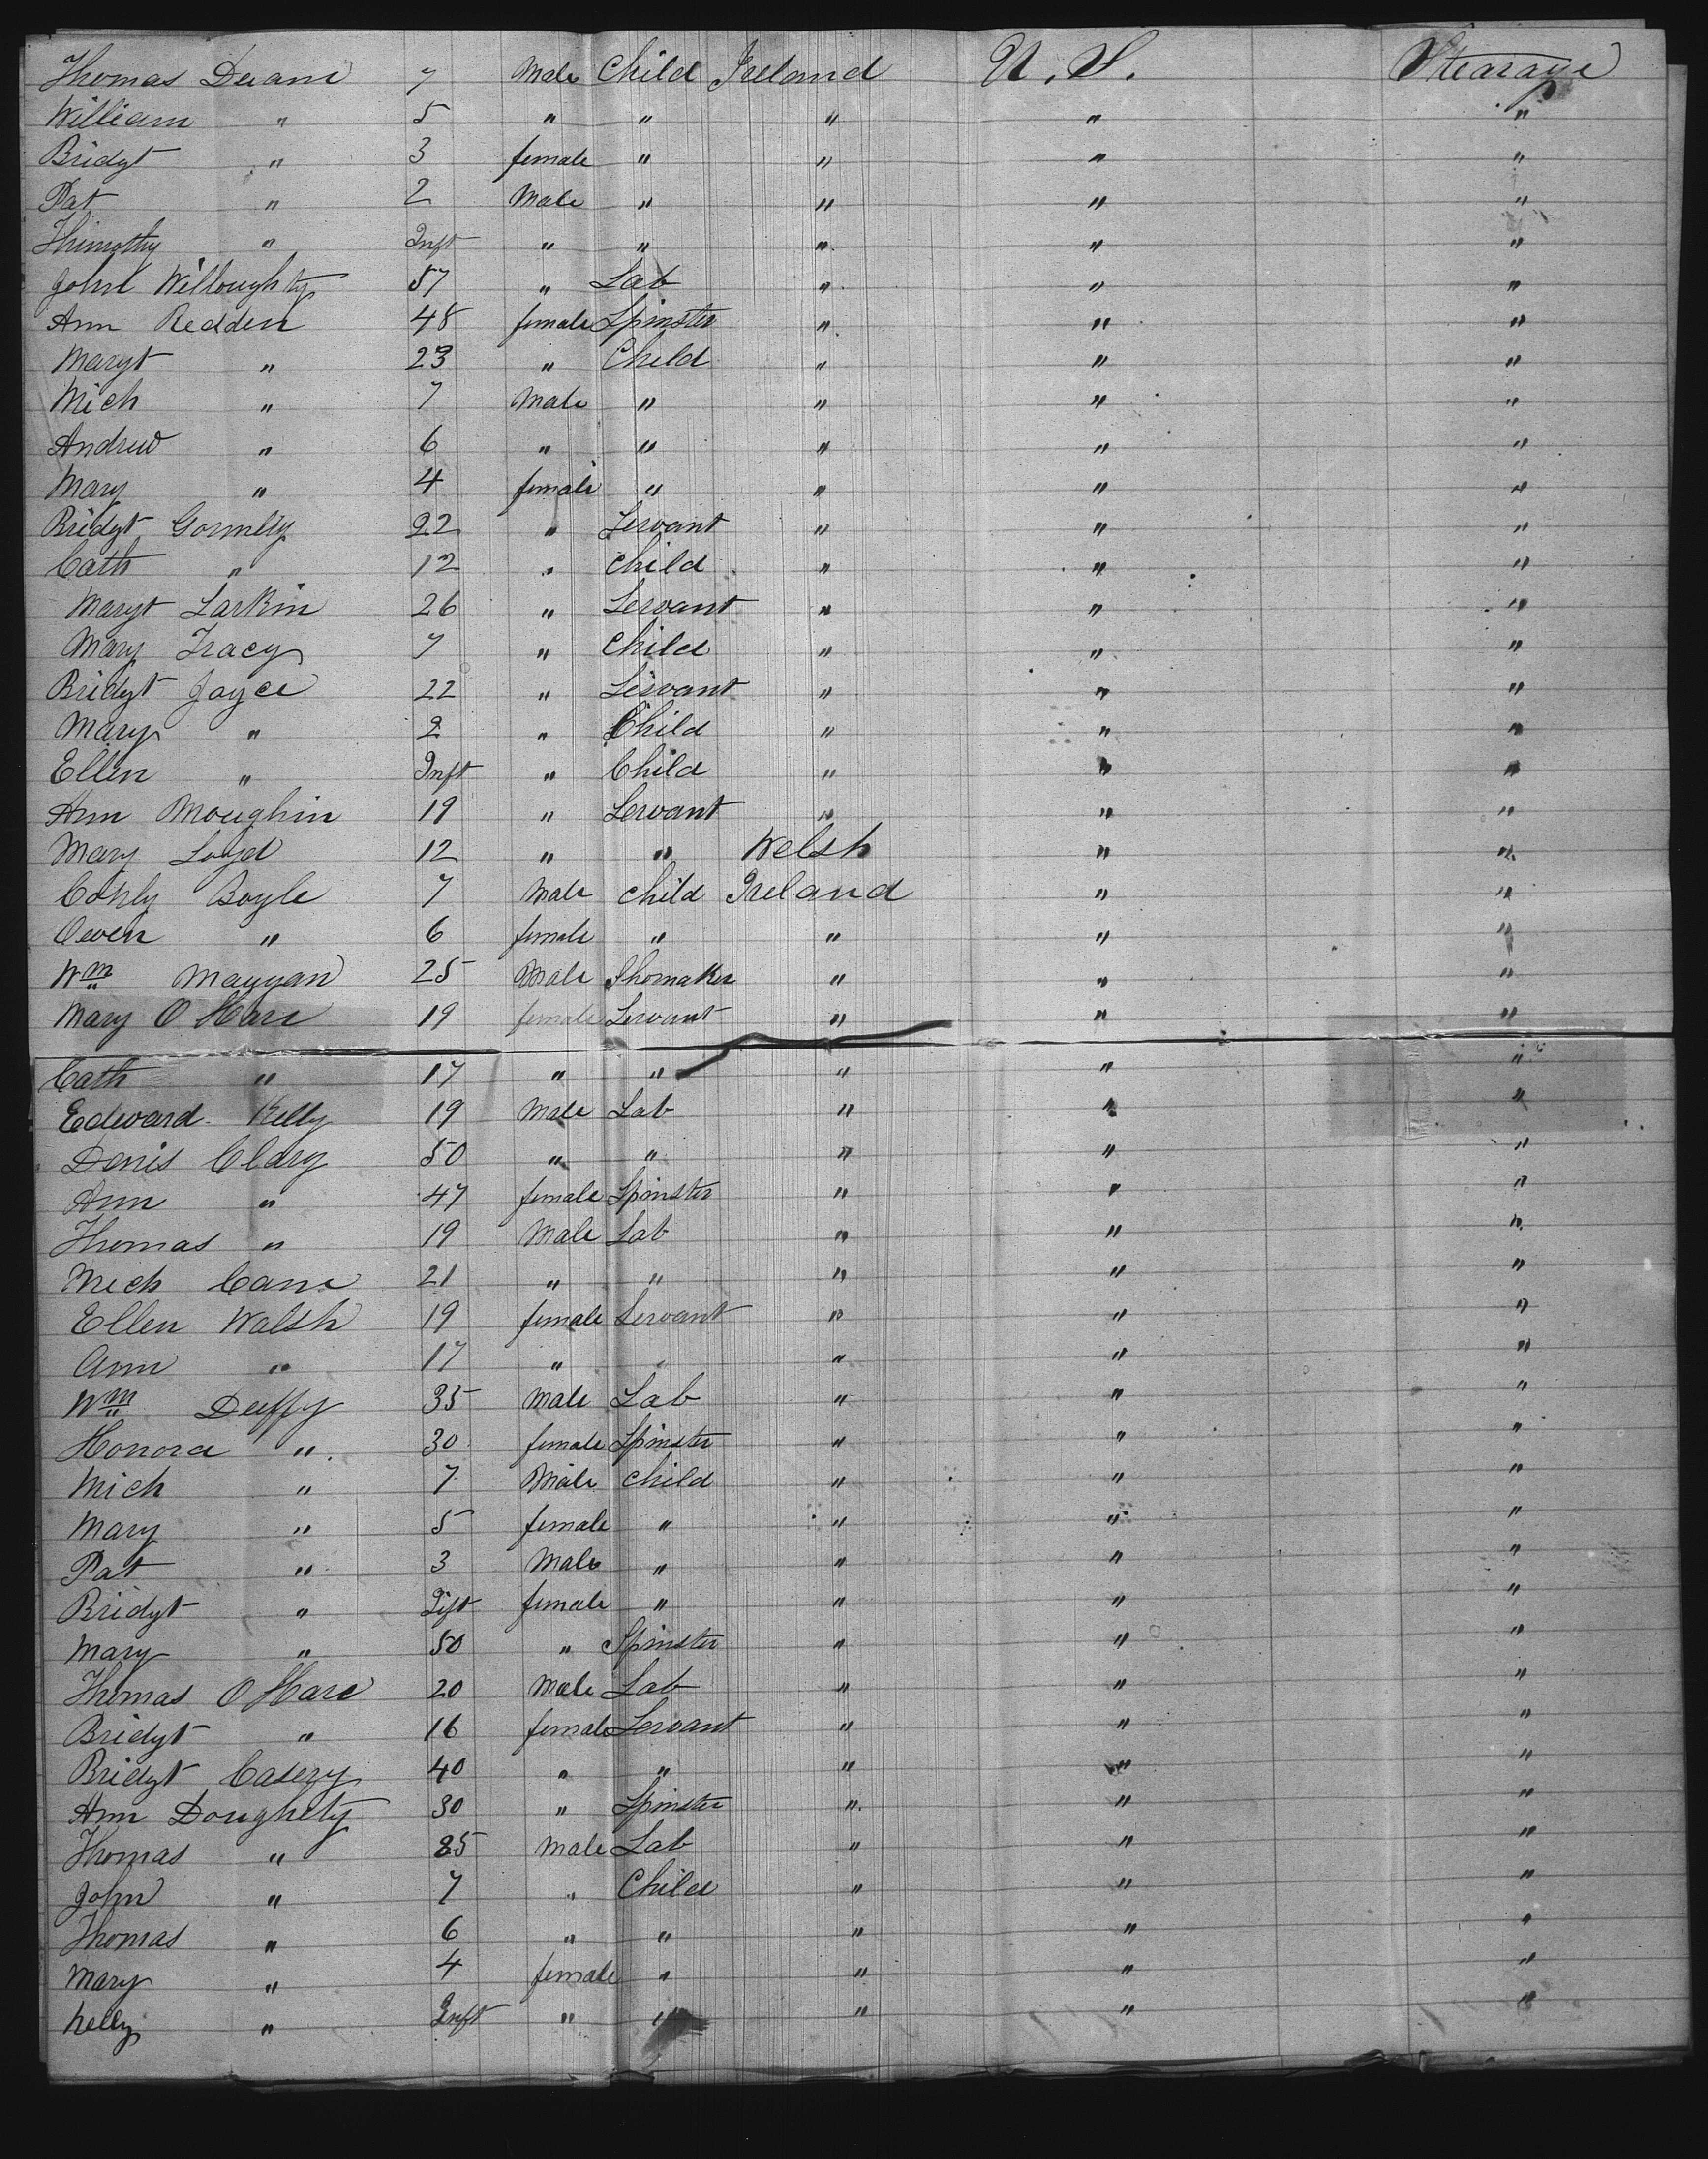 Thomas Deane 7 Male Child Ireland U. S. Stearage
William " 5 " " " " "
Bridgt " 3 female " " " "
Pat " 2 Male " " " "
Thimothy " Inft " " " " "
John Willoughty 57 " Lab " " "
Ann Redden 48 female Spinster " " "
Margt " 23 " Child " " "
Mich " 7 Male " " " "
Andrew " 6 " " " " "
Mary " 4 female " " " "
Bridgt Gormlly 22 " Servant " " "
Cath " 12 " Child " " "
Margt Larkin 26 " Servant " " "
Mary Tracy 7 " Child " " "
Bridgt Joyce 22 " Servant " " "
Mary " 2 " Child " " "
Ellen " Inft " Child " " "
Ann Moughin 19 " Servant " " "
Mary Loyd 12 " " Welsh " "
Boyle 7 Male Child Ireland " "
Owen " 6 female " " " "
Wm Mangan 25 Male Shomaker " " "
Mary O Hare 19 female Servant " " "
Cath " 17 " " " " "
Edward Kelly 19 Male Lab " " "
Denis Clary 50 " " " " "
Ann " 47 female Spinster " " "
Thomas " 19 Male Lab " " "
Mich Cane 21 " " " " "
Ellen Walsh 19 female Servant " " "
Ann " 17 " " " " "
Wm Duffy 35 Male Lab " " "
Honora " 30 female Spinster " " "
Mich " 7 Male Child " " "
Mary " 5 female " " " "
Pat " 3 Male " " " "
Bridgt " Inft female " " " "
Mary " 50 " Spinster " " "
Thomas O Hare 20 Male Lab " " "
Bridgt " 16 female Servant " " "
Bridgt Casery 40 " " " " "
Ann Doughety 30 " Spinster " " "
Thomas " 35 Male Lab " " "
John " 7 " Child " " "
Thomas " 6 " " " " "
Mary " 4 female " " " "
Nelly " Inft " " " " "